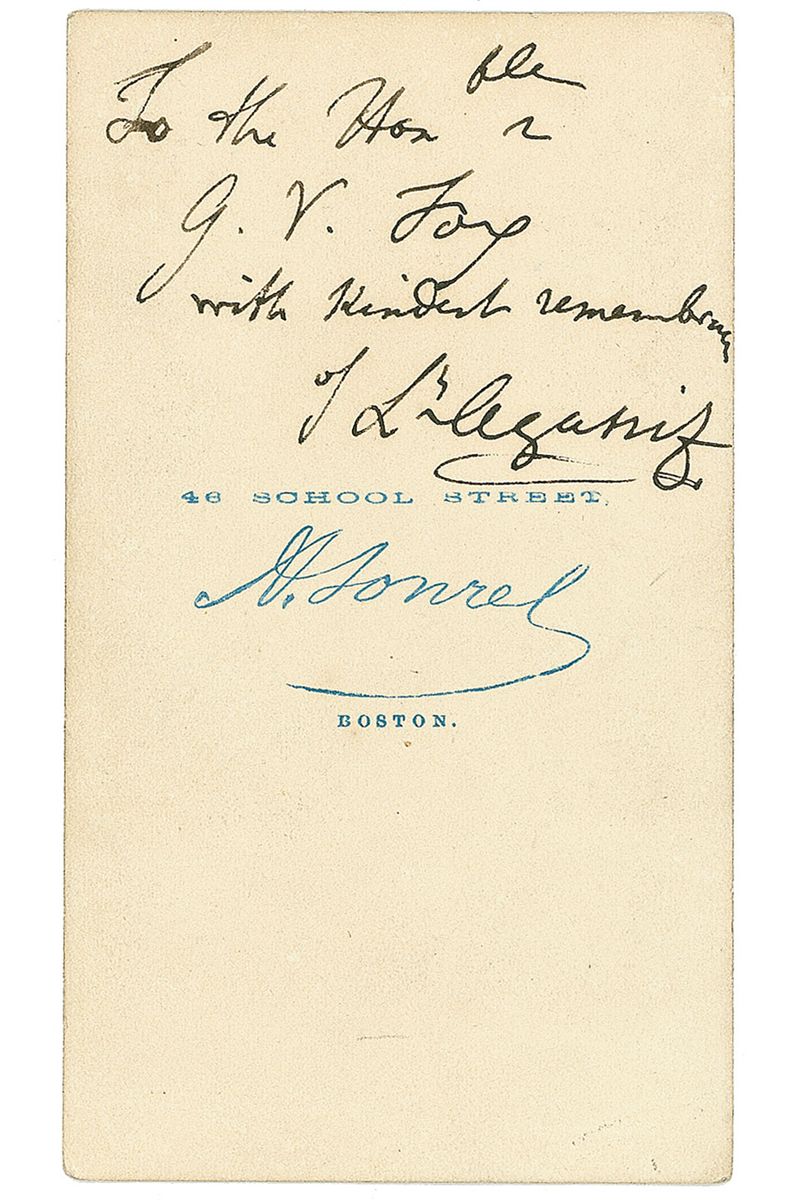 To the Honble
G. V. Fox
with kindest remembrances
of Lr Agassiz
46 SCHOOL STREET,
A. Sonrel
BOSTON.